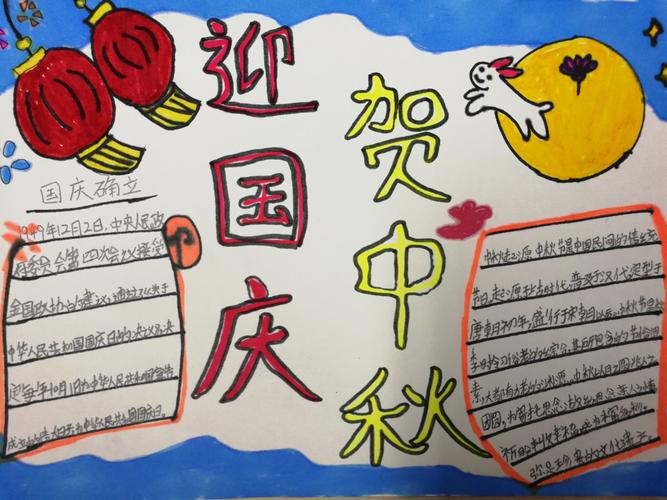 迎国庆
贺中秋
国庆确立
1949年12月2日,中央人民政
府委员会第四次会议接受
全国政协的建议,通过了《关于
中华人民共和国国庆日的决议》,决
定每年10月1日为中华人民共和国宣告
成立的 日为中华人民共和国国庆日。
中秋起源 中秋节是中国民间的传统
节日,起源于 时代,普及于汉代,定型于
唐朝初年,盛行于宋朝以后。中秋节是
季时令习俗的 合,其所包含的节俗
素,大都有古老的渊源。中秋以月之圆兆人之
团圆,为寄托思念故乡,思念亲人之情,
祈盼丰收幸福,成为
弥足珍贵的文化